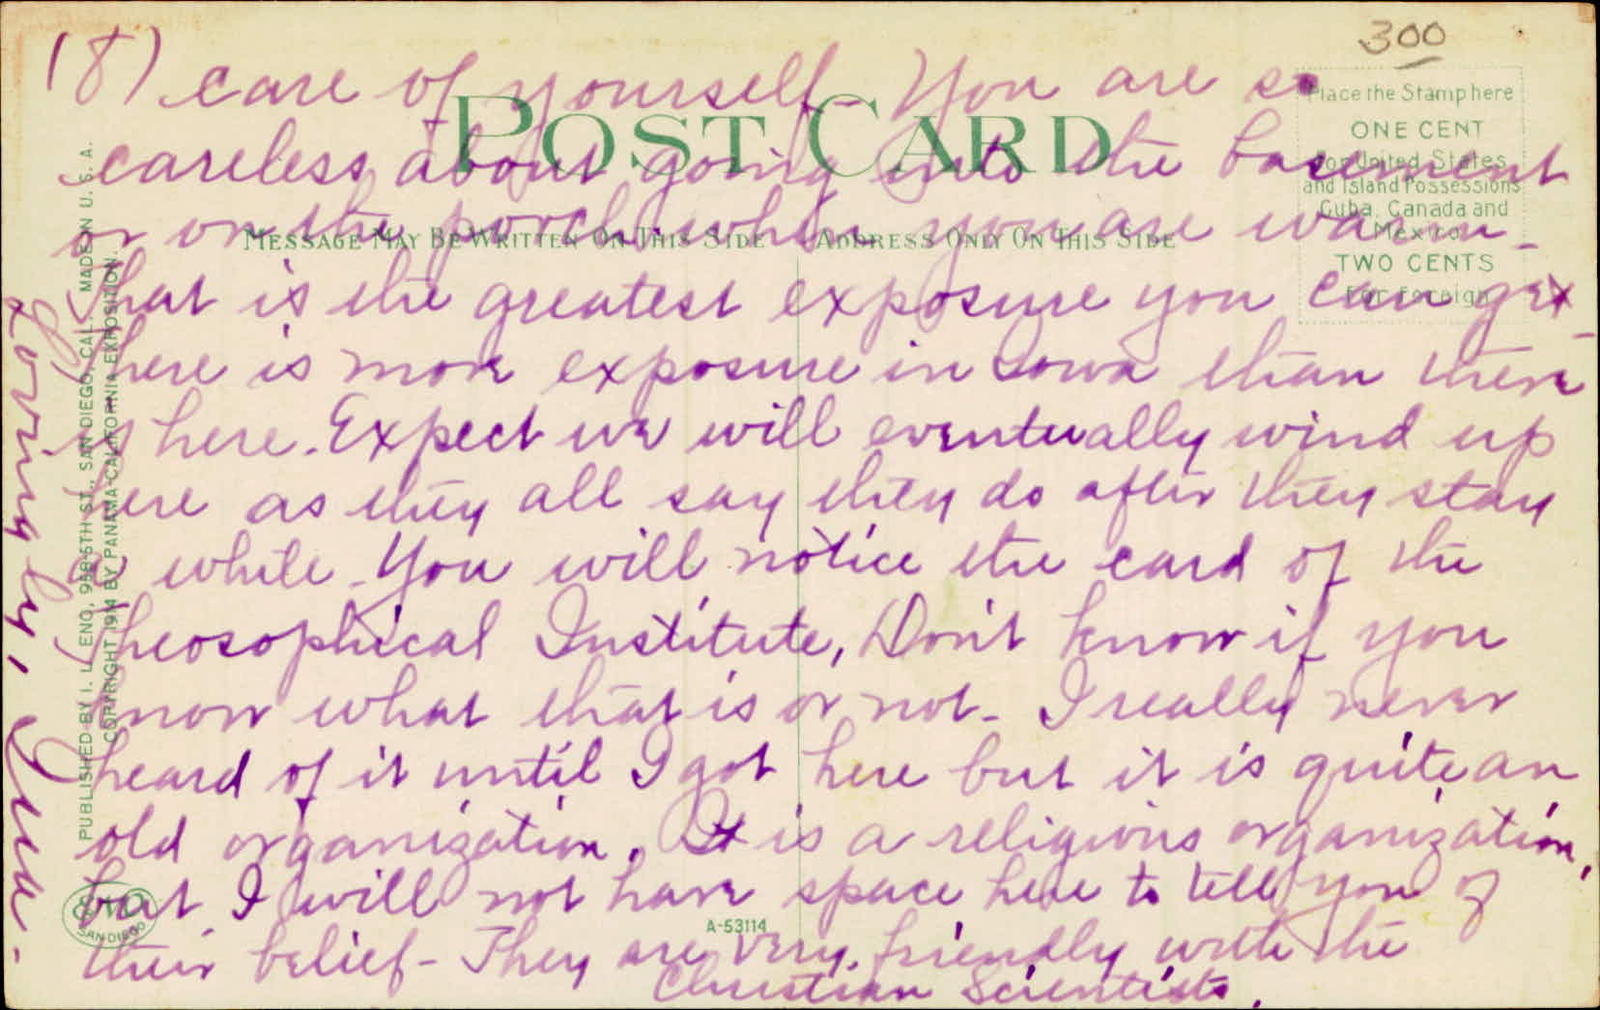 300
(8) care of yourself - You are so
careless about going into the basement
or on the porch when you are warm -
that is the greatest exposure you can get -
There is more exposure in Iowa than there
is here. Expect we will eventually wind up
here as they all say they do after they stay
a while. You will notice the card of the
Theosophical Institute, Don't know if you
know what that is or not - I really never
heard of it until I got here but it is quite an
old organization. It is a religious organization,
but I will not have space here to tell you of
their belief - They are very friendly with the
Christian Scientists.
Lovingly,
POST CARD
MESSAGE MAY BE WRITTEN ON THIS SIDE
ADDRESS ONLY ON THIS SIDE
Place the Stamp here
ONE CENT
For United States
and Island Possessions
Cuba, Canada and
Mexico
TWO CENTS
For Foreign
PUBLISHED BY I. L. ENO, 958-5TH ST., SAN DIEGO, CAL. MADE IN U. S. A.
COPYRIGHT 1914 BY PANAMA-CALIFORNIA EXPOSITION.
SAN DIEGO
A-53114